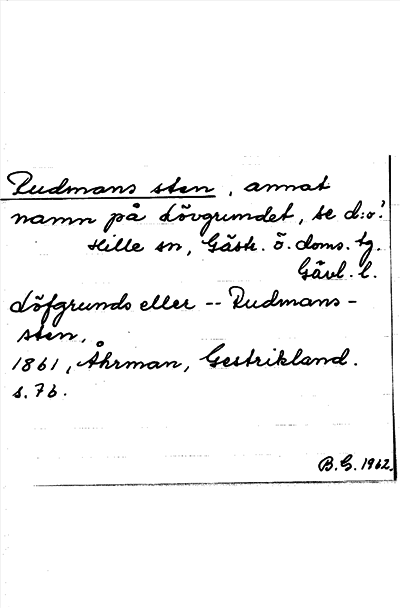 Rudmans sten, annat
namn på Lövgrundet, se d:o!
Hille sn, Gästr. ö. doms. tg.
Gävl. l.
Löfgrunds eller -- Rudmans-
sten,
1861, Åhrman, Gestrikland.
s. 76.
B.G. 1962.